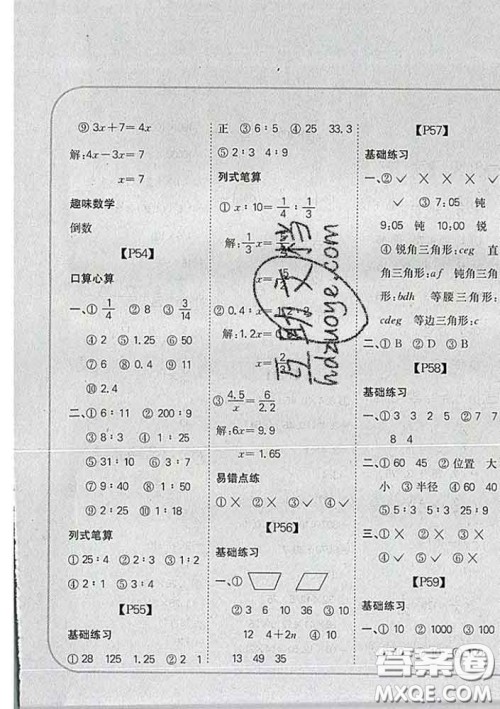 ⑨ 3x＋7＝4x
解:4x－3x＝7
x＝7
趣味数学
倒数
【P54】
口算心算
一、①1/4 ②8 ③3/14
④2 ⑤1.25 ⑥50
⑦6 ⑧125 ⑨11
⑩2.4
二、①6∶11 ②200∶9
③8∶9 ④10∶3
⑤31∶10 ⑥2∶3
⑦9∶40 ⑧2∶1
⑨11∶10 ⑩1∶50
列式笔算
①25∶4 ②2∶3 ③1∶2
④2∶1 ⑤5∶3
【P55】
基础练习
一、①28 125 1.25 ②2 1
正 ③6∶5 ④25 33.3
⑤2∶3 4∶9
列式笔算
①x∶10＝1/4∶1/3
解:1/3x＝
x＝
②0.4∶x＝
解:1.2
x＝
③4.5/x＝6/2.2
解:6x＝9.9
x＝1.65
易错点练
①× ②× ③✓ ④✓
【P56】
基础练习
一、①
②3 6 10 36 ③10
12 4＋2n ④10
13 49 35
【P57】
基础练习
一、②✓ × × × ✓
✓ ③7:05 钝
9:05 钝 10:00 锐
④锐角三角形:ceg 直
角三角形:af 钝角三角
形:bdh 等腰三角形:
cdeg 等边三角形:c
二、①B ②D ③B
【P58】
基础练习
一、①3 3 2 5 ②7 7
8 4
二、①60 45 ②位置 大
小 ③半径 ④60
⑤5∶3 5∶3 25∶9
三、①× ②× ③✓
④✓ ⑤✓
【P59】
基础练习
一、①10 ②1000 ③100
互助文档
hdzuoye.com
答案圈
MXQE.COM